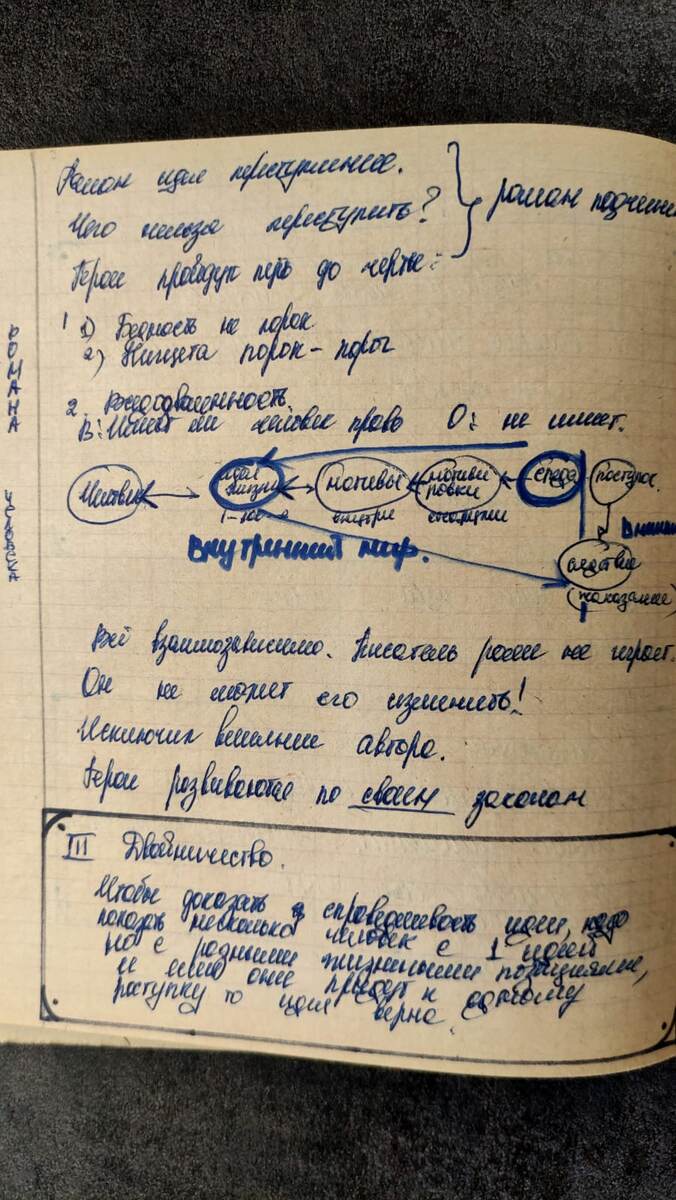 Роман идея переступления.
Чего нельзя переступить?
роман подчинен
Герои пройдут путь до черты:
1 1) Бедность не порок
2) Нищета порок - порог
2. Вседозволенность
В: Имеет ли человек право О: не имеет.
идея жизни
мотивы
мотиви
ровки
среда
поступок
внутри
Внутренний мир.
следствие
(наказание)
Всё взаимозависимо. Писатель роли не играет.
Он не может его изменить!
Исключил внешние автора.
Герои развиваются по своим законам
III Двойничество.
Чтобы доказать справедливость идеи, надо
показать несколько человек с 1 идеей
но с разными жизненными позициями,
и если они придут к одному
поступку то идея верна.
РОМАНА
ЧЕЛОВЕКА